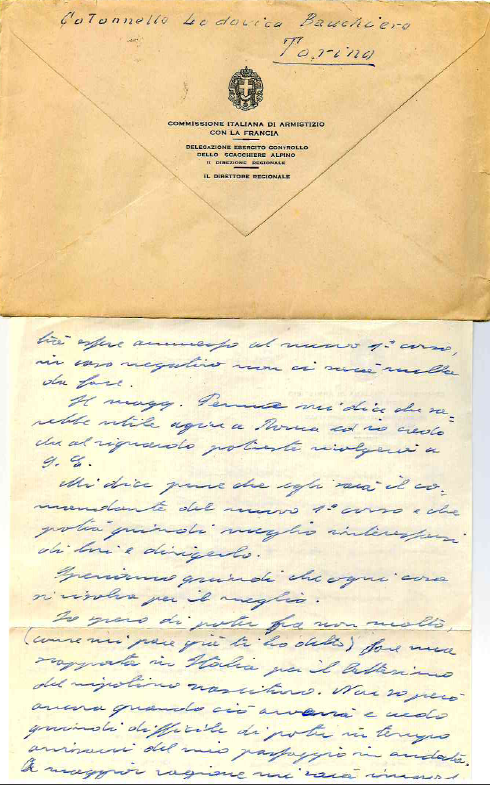 Colonnello Lodovico Bauchiero
Torino
COMMISSIONE ITALIANA DI ARMISTIZIO
CON LA FRANCIA
DELEGAZIONE ESERCITO CONTROLLO
DELLO SCACCHIERE ALPINO
II DIREZIONE REGIONALE
IL DIRETTORE REGIONALE
trà essere ammesso al nuovo 1° corso,
in caso negativo non ci sarà nulla
da fare.
Il magg. mi dice che sa=
rebbe utile agire a Roma ed io credo
che al riguardo potreste rivolgervi a
S. E.
Mi dice pure che egli sarà il co=
mandante del nuovo 1° corso e che
potrà quindi meglio interessarsi
di lui e dirigerlo.
Speriamo quindi che ogni cosa
si risolva per il meglio.
Io spero di poter fra non molto,
(come mi pare già ti ho detto) fare una
scappata in Italia per il battesimo
del nipotino nascituro. Non so però
ancora quando ciò avverrà e credo
quindi difficile di poter in tempo
avvisarvi del mio passaggio in andata.
A maggior ragione mi sarà